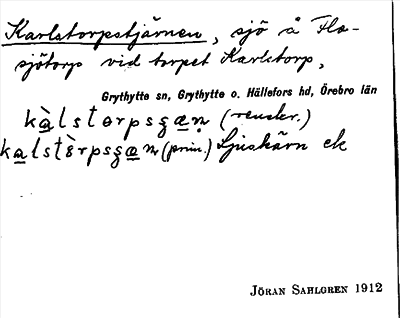 Karlstorpstjärnen, sjö å Flo-
sjötorp vid torpet Karlstorp,
Grythytte sn, Grythytte o. Hällefors hd, Örebro län
(renskr.)
(prim.) Ljuskärn ek
JÖRAN SAHLGREN 1912